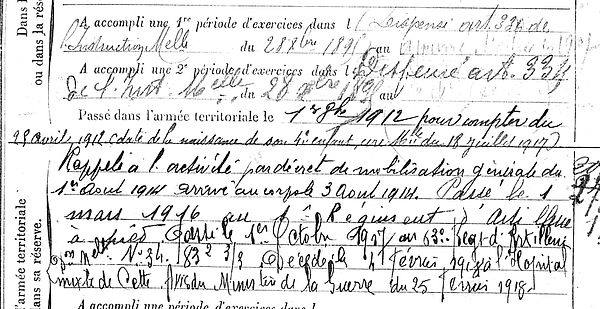 Dans l
ou dans la réserve
A accompli une 1re période d'exercices dans l (Dispensé art. 334 de
l'Instruction Melle du 28 Xbre 189 au
A accompli une 2e période d'exercices dans l Dispensé art. 334
de l'Inst. Melle du 28 Xbre 189
Passé dans l'armée territoriale le 1er 8bre 1912 (pour compter du
25 avril 1912 (date de la naissance de son 4e enfant, une Mlle du 18 juillet 1917)
Rappelé à l'activité par décret de mobilisation générale du
1er Août 1914 arrivé au corps le 3 Août 1914. Passé le 1
mars 1916 au 1 Régiment d'Artillerie
à pied. Passé le 1er Octobre 1917 au 63e Regt d'Artillerie
No 34. 832 3/3 Décédé le 4 février 1918 à l'Hospital
mixte de Cette. Avis du Ministre de la Guerre du 25 février 1918)
l'armée territoriale
dans sa réserve.
A accompli une 1re période d'exercices dans l